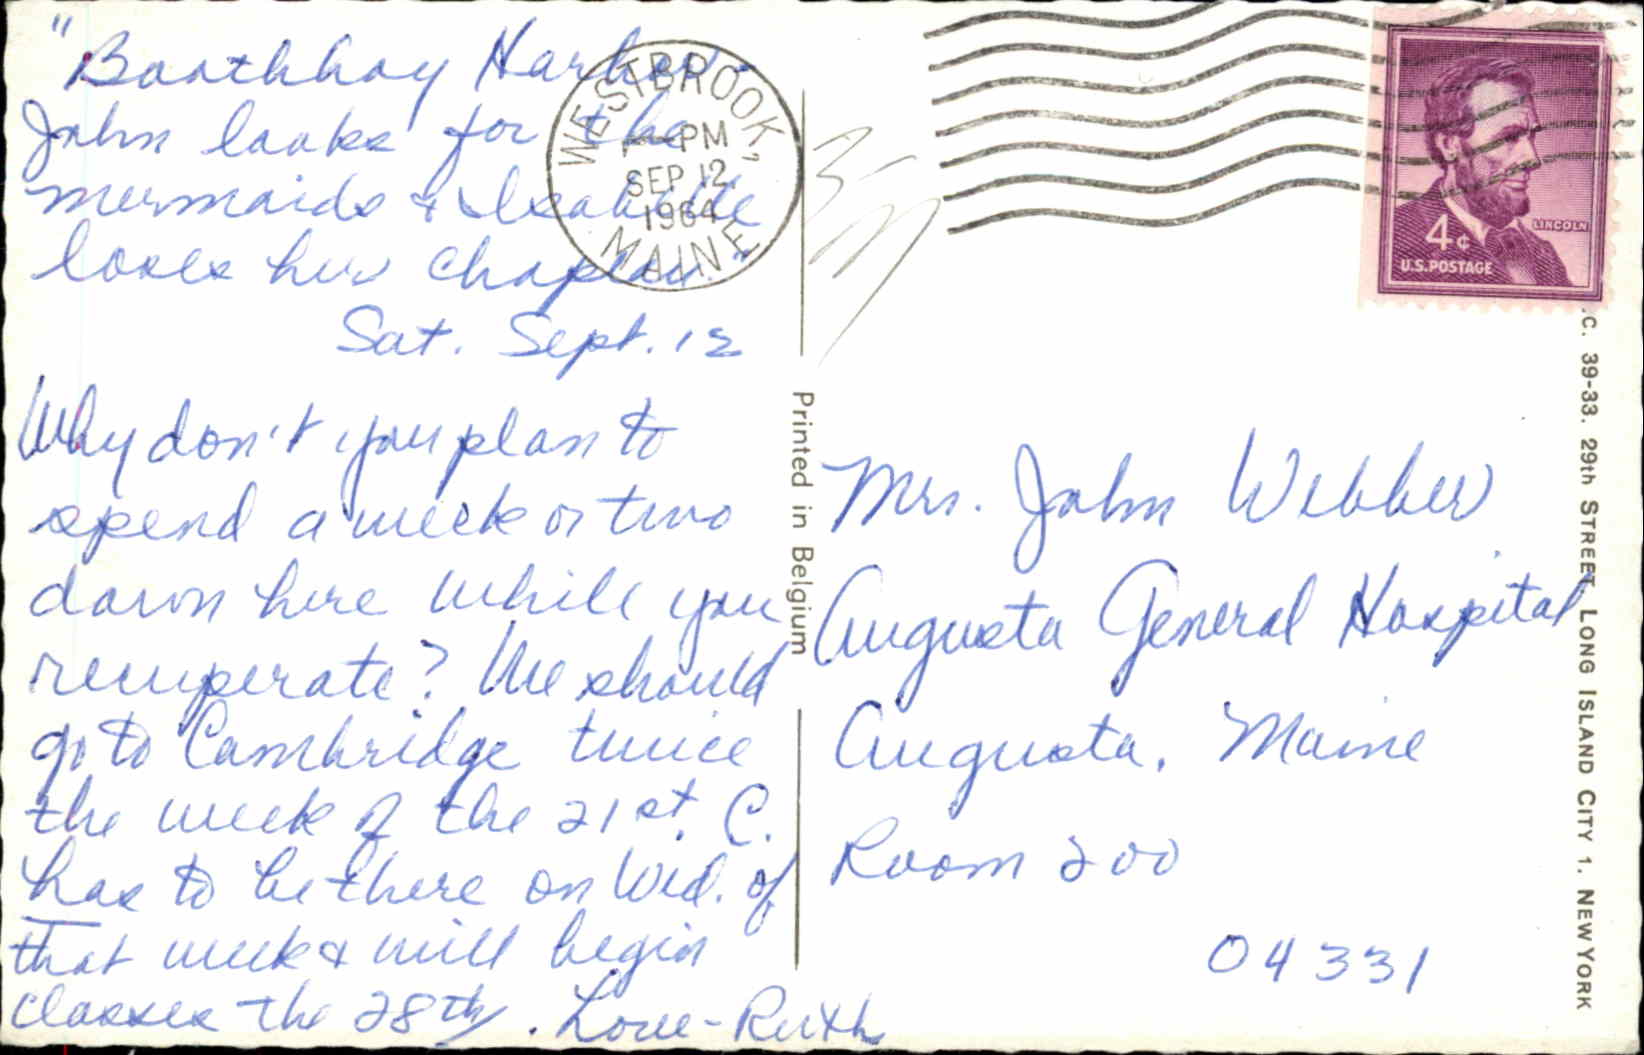 "Boothbay Harbor-
John looks for the
mermaids & Isabelle
loses her chapeau"
Sat. Sept. 12
Why don't you plan to
spend a week or two
down here while you
recuperate? We should
go to Cambridge twice
the week of the 21st. C.
has to be there on Wed. of
that week & will begin
classes the 28th. Love-Ruth
WESTBROOK,
PM
SEP 12
1964
MAINE
LINCOLN
4¢
U.S.POSTAGE
Printed in Belgium
Mrs. John Webber
Augusta General Hospital
Augusta, Maine
Room 200
04331
.C. 39-33. 29th STREET, LONG ISLAND CITY 1. NEW YORK